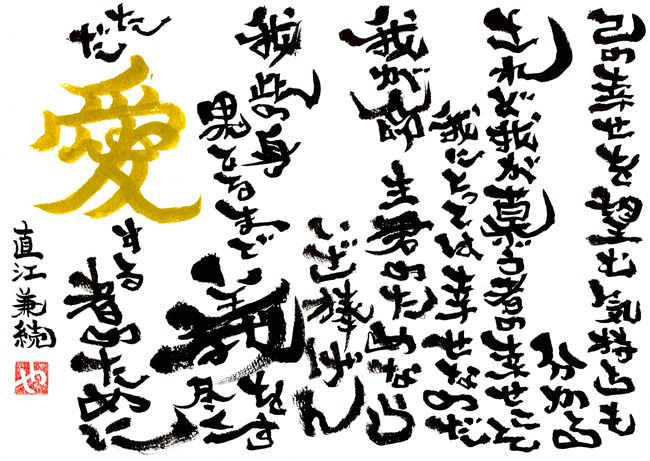 己の幸せを望む気持ちも
分かる
されど我が慕う者の幸せこそ
我にとっては幸せなのだ
我が命 主君のためなら
いざ捧げん
我此の身
果となるまで
義を尽くす
ただ
ただ
愛する者のために
直江兼続
や